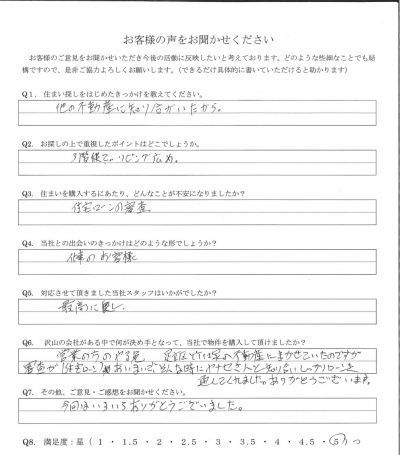 お客様の声をお聞かせください
お客様のご意見をお聞かせいただき今後の活動に反映したいと考えております。どのような些細なことでも結
構ですので、是非ご協力よろしくお願いします。(できるだけ具体的に書いていただけると助かります)
Q1. 住まい探しをはじめたきっかけを教えてください。
他の不動産に知り合がいたから。
Q2. お探しの上で重視したポイントはどこでしょうか。
3階建て。リビング広め。
Q3. 住まいを購入するにあたり、どんなことが不安になりましたか?
住宅ローンの審査。
Q4. 当社との出会いのきっかけはどのような形でしょうか?
仕事のお客様
Q5. 対応させて頂きました当社スタッフはいかがでしたか?
最高に良い。
Q6. 沢山の会社がある中で何が決め手となって、当社で物件を購入して頂けましたか?
営業の方のやる気 の不動産にまかせていたのですが
審査が(住宅ローン) そんな時に と知り合い ローンを
通してくれました。ありがとうございます。
Q7. その他、ご意見・ご感想をお聞かせください。
今回はいろいろありがとうございました。
Q8. 満足度:星 ( 1 ・ 1.5 ・ 2 ・ 2.5 ・ 3 ・ 3.5 ・ 4 ・ 4.5 ・ 5 ) つ